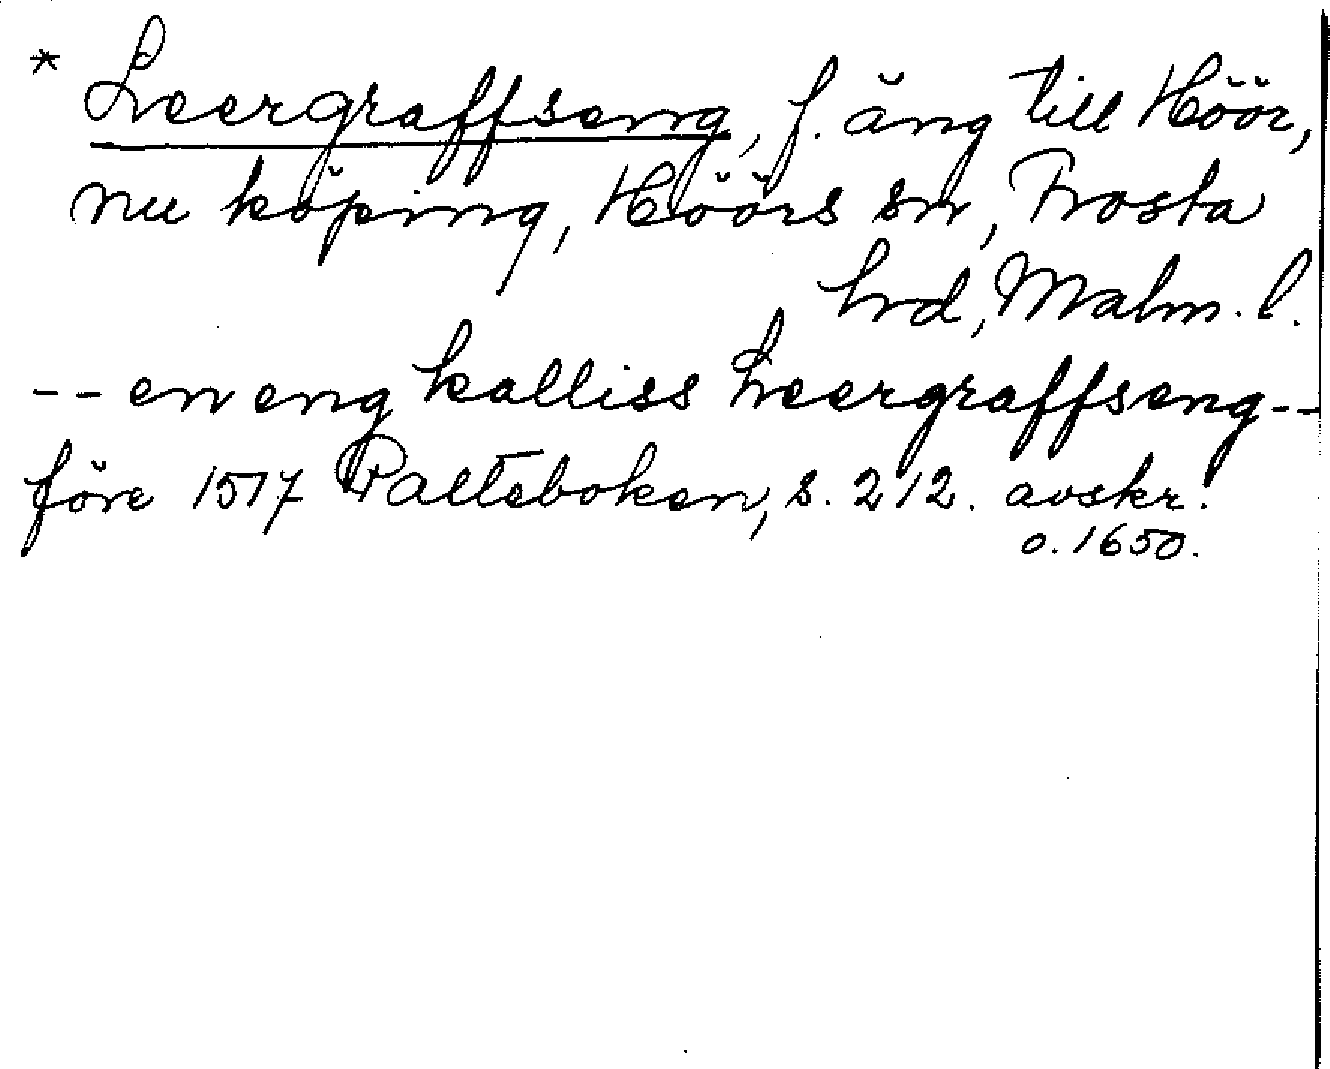 * Leergraffseng, f. äng till Höör,
nu köping, Höörs sn, Frosta
hrd, Malm. l.
-- en eng kalliss Leergraffseng --
före 1517 Palteboken, s. 212. avskr.
o. 1650.